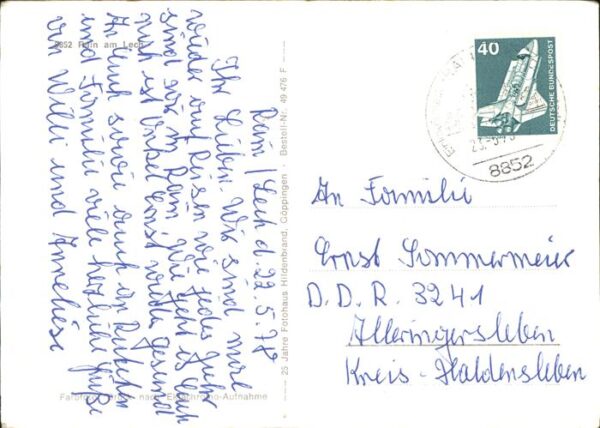 8852 Rain am Lech
Rain/Lech d. 22.5.78
Ihr Lieben. Wir sind mal
wieder auf Reisen wie jedes Jahr
sind wir in Rain. Wie geht es Euch
ist Onkel Ernst wieder gesund
An Euch sowie auch an
und Familie viele herzliche Grüße
von Willi und Anneliese
Farbfoto nach Ektachrome-Aufnahme
25 Jahre Fotohaus Hildenbrand, Göppingen · Bestell-Nr. 49 476 F
40
DEUTSCHE BUNDESPOST
23.-5.78
8852
An Familie
Ernst Sommermeier
D.D.R. 3241
Alleringersleben
Kreis-Haldensleben